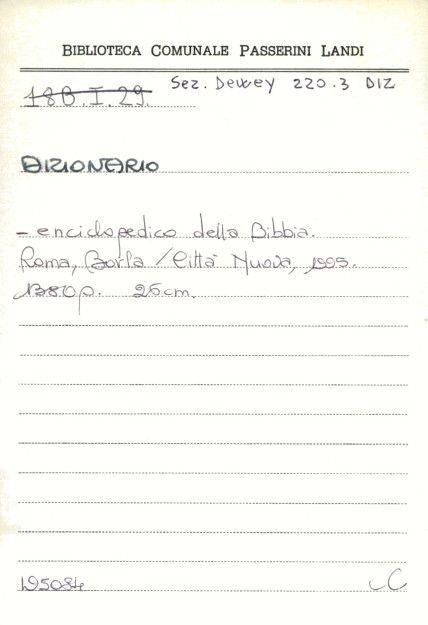 BIBLIOTECA COMUNALE PASSERINI LANDI
18B.I.29. Sez. Dewey 220.3 DIZ
DIZIONARIO
- enciclopedico della Bibbia.
Roma, Borla / Città Nuova, 1995.
1380 p. 26 cm.
195084 CC